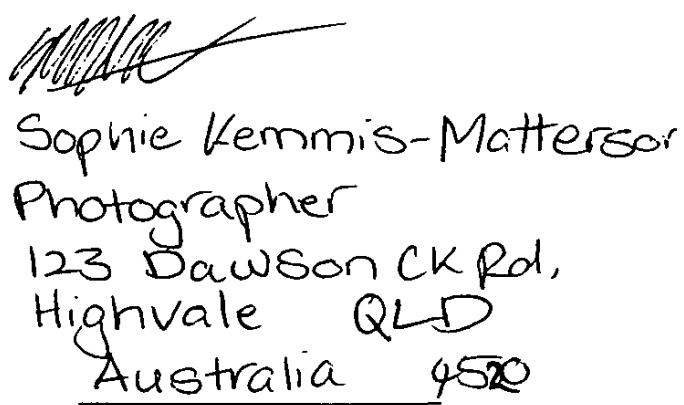 Sophie Kemmis-Matterson
Photographer
123 Dawson CK Rd,
Highvale QLD
Australia 4520